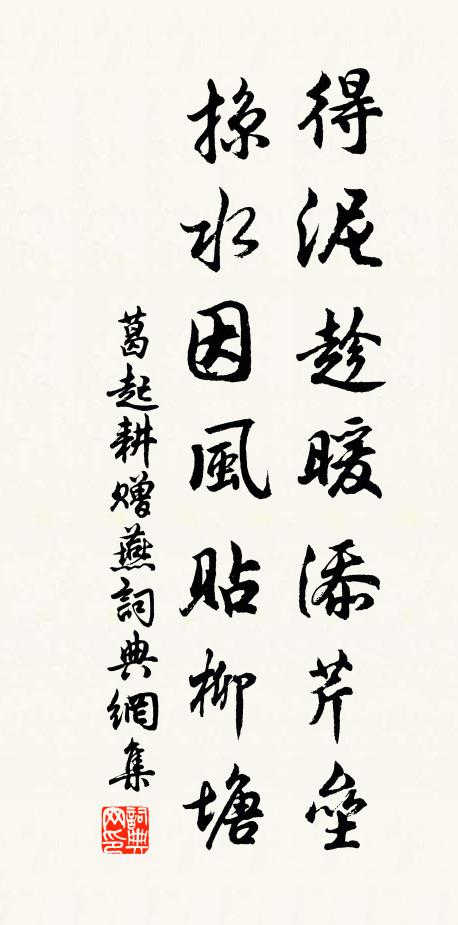 得泥趁暖添芹垒
掠水因風貼柳塘
葛起耕赠燕詞典網集
詞典网印